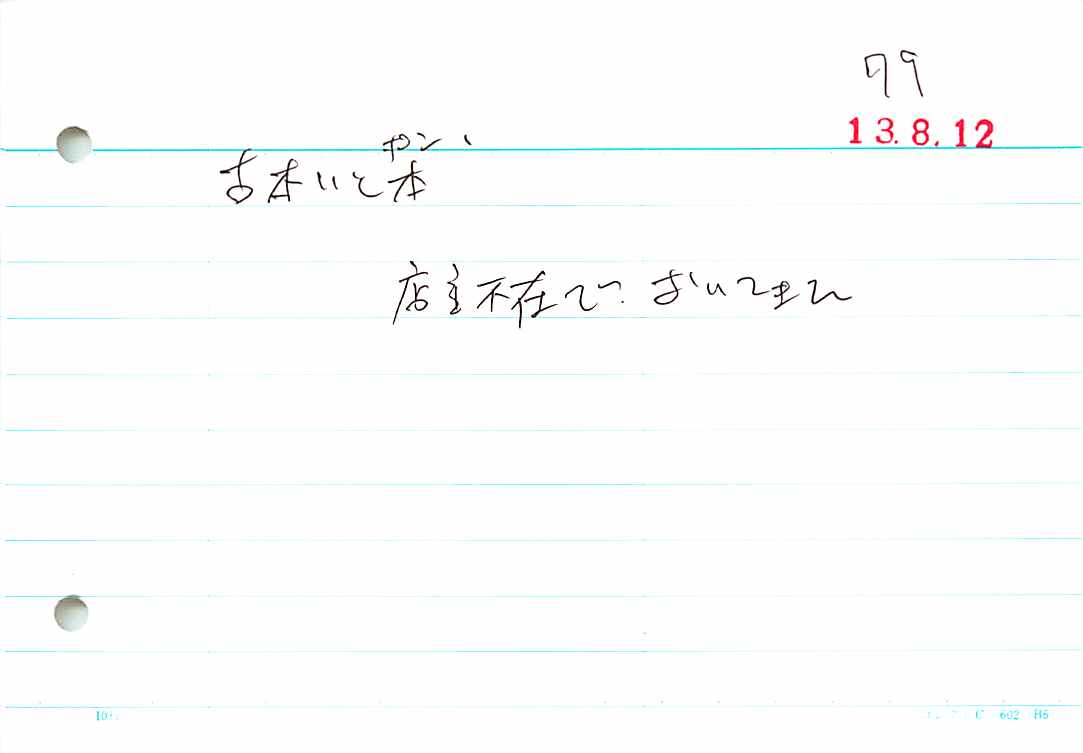 79
13.8.12
古本いと本
店主不在で おいてません
C 602 B6